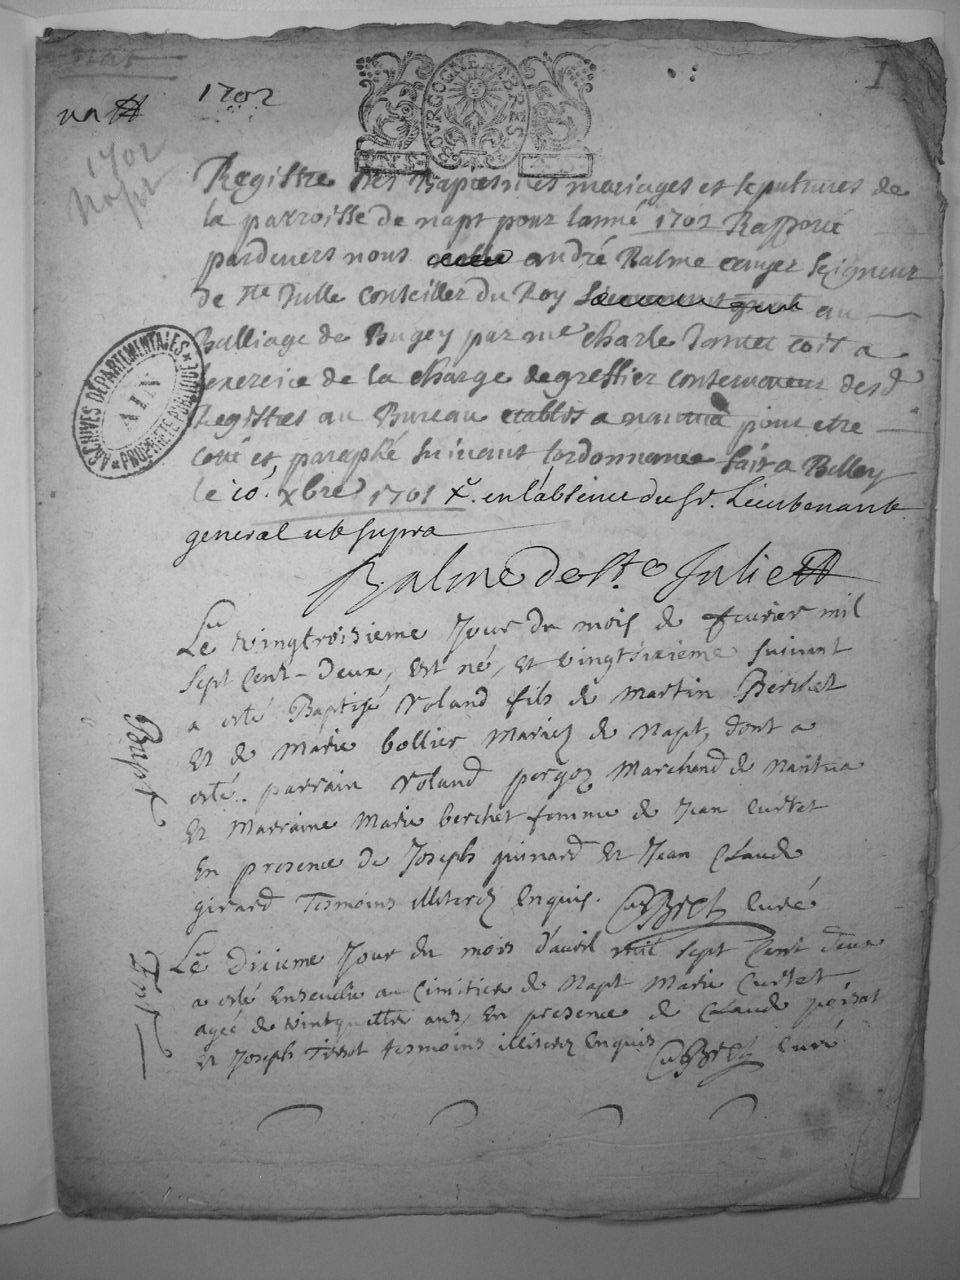 1702
1
BOURGOGNE ET BRESSE
1702
Napt
ARCHIVES DÉPARTEMENTALES
AIN
PROPRIÉTÉ PUBLIQUE
Registre des Baptesmes mariages et sepultures de
la parroisse de napt pour lanné 1702 Rapporté
pardevers nous andré Balme Seigneur
de Ste Jullie Conseiller du Roy au
Balliage de Bugey par me Charle
lexercice de la charge degreffier conservateur desd
Registres au Bureau establis a nantua pour etre
cotté et paraphé suivant lordonnance fait a Belley
le 10e. xbre 1701 X. en labsence du sr. Lieutenant
general ut supra
Balme de ste Julie
Le vingtroisieme Jour du mois de feuvrier mil
sept cent-Deux, est né, et vingtsixieme suivant
a esté Baptisé Roland fils de Martin Berchet
Et de Marie bollier Mariez de Napt, dont a
esté parrain Roland Marchand de Nantua
Et Marraine Marie berchet femme de Jean Curtet
En presence de Joseph guinard Et Jean Claude
girard Tesmoins illiterez Enquis. Curé
Bapt
Le dixieme Jour du mois d'avril mil sept Cent deux
a esté Ensevelie au Cimitiere de Napt Marie Curtet
agée de vintquattre ans, En presence de Claude
et Joseph Tissot tesmoins illiterez Enquis Curé